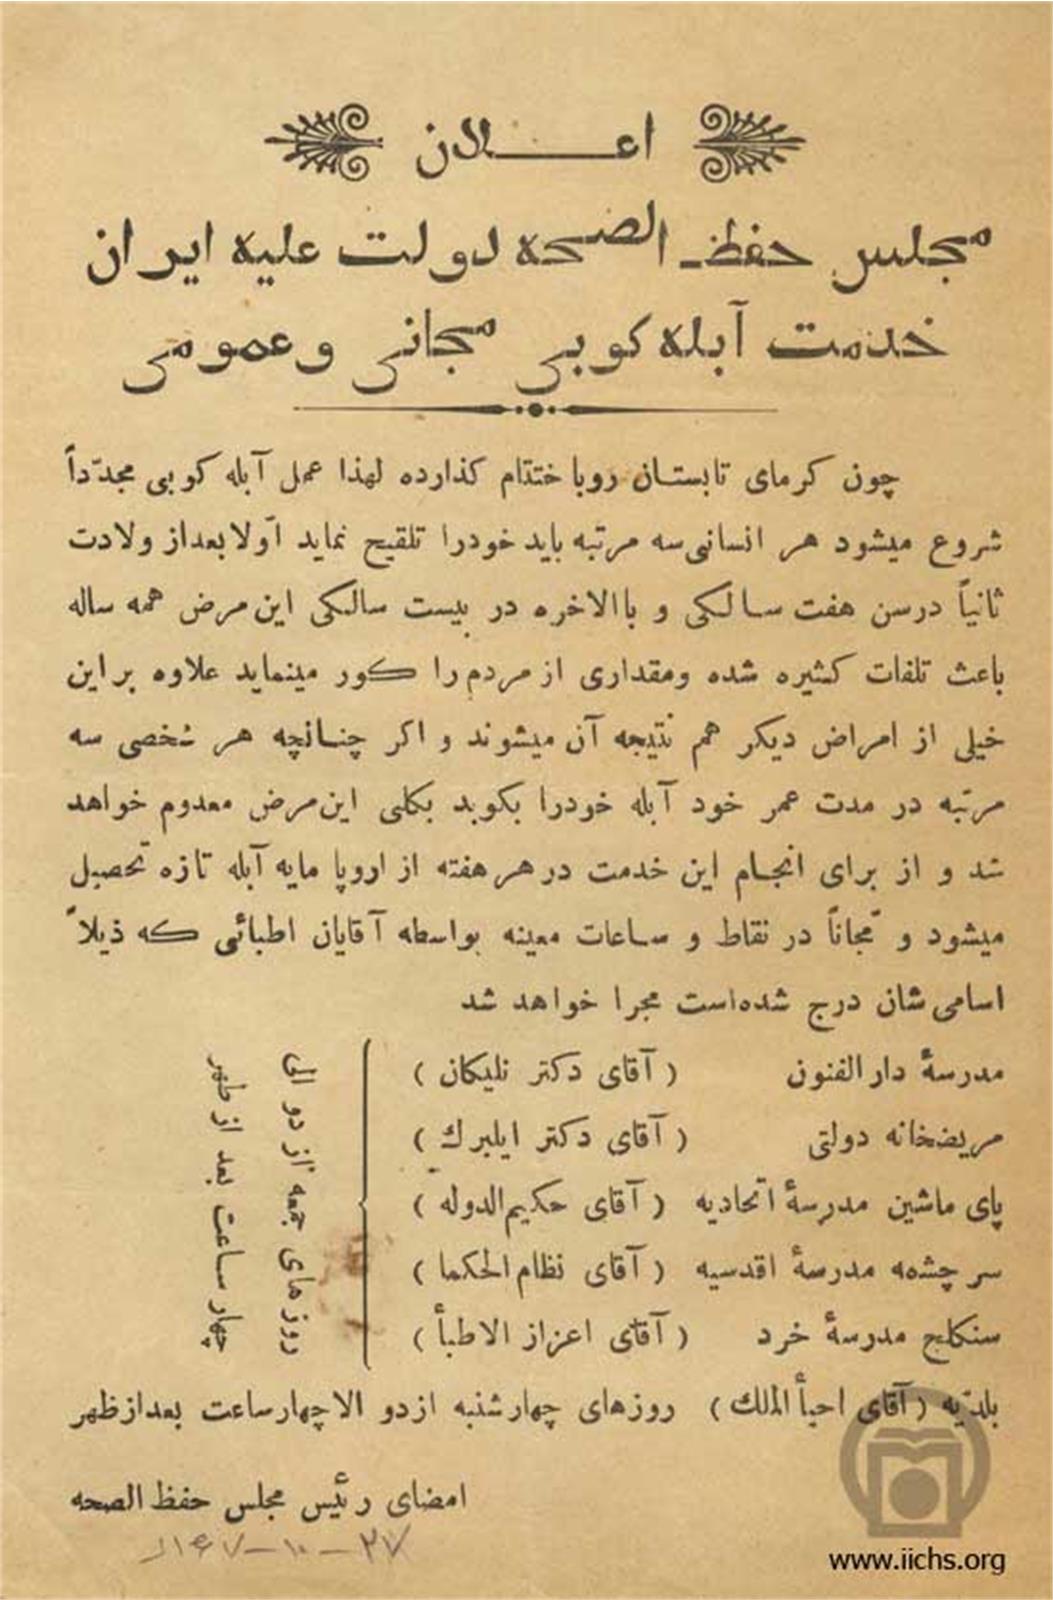 اعلان
مجلس حفظ الصحه دولت علیه ایران
خدمت آبله کوبی مجانی و عمومی
چون کرمای تابستان روبا ختتام کذارده لهذا عمل آبله کوبی مجدّداً
شروع میشود هر انسانی سه مرتبه باید خودرا تلقیح نماید اوّلا بعد از ولادت
ثانیاً درسن هفت سالکی و باالاخره در بیست سالکی این مرض همه ساله
باعث تلفات کثیره شده ومقداری از مردم را کور مینماید علاوه براین
خیلی از امراض دیکر هم نتیجه آن میشوند و اکر چنانچه هر شخصی سه
مرتبه در مدت عمر خود آبله خودرا بکوبد بکلی این مرض معدوم خواهد
شد و از برای انجام این خدمت در هر هفته از اروپا مایه آبله تازه تحصیل
میشود و مجاناً در نقاط و ساعات معینه بواسطه آقایان اطبائی که ذیلاً
اسامی شان درج شده‌است مجرا خواهد شد
مدرسهٔ دارالفنون (آقای دکتر نلیکان)
مریضخانه دولتی (آقای دکتر ایلبرك)
پای ماشین مدرسهٔ اتحادیه (آقای حکیم الدوله)
سرچشمه مدرسهٔ اقدسیه (آقای نظام الحکما)
سنکلج مدرسهٔ خرد (آقای اعزاز الاطبأ)
روزهای جمعه از دو الی
چهار ساعت بعد از ظهر
بلدیّه (آقای احیأ الملك) روزهای چهارشنبه از دو الا چهار ساعت بعد از ظهر
امضای رئیس مجلس حفظ الصحه
www.iichs.org